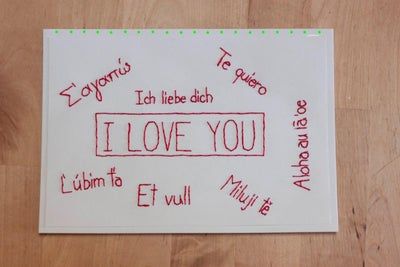 Σ'αγαπώ
Te quiero
Ich liebe dich
I LOVE YOU
Aloha au iā 'oe
Ľúbim ťa
Et vull
Miluji tě